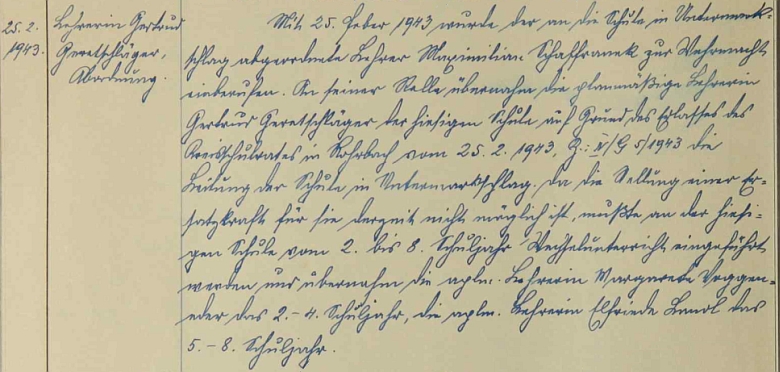 25. 2.
1943.
Lehrerin Gertrud
Geretschläger,
Abordnung.
Mit 25. Feber 1943 wurde der an die Schule in Untermark-
schlag abgeordnete Lehrer Maximilian Schaffranek zur Wehrmacht
einberufen. An seiner Stelle übernahm die planmäßige Lehrerin
Gertrud Geretschläger der hiesigen Schule auf Grund des Erlasses des
Kreisschulrates in Rohrbach vom 25. 2. 1943, Z.: II/G 5/1943 die
Leitung der Schule in Untermarkschlag. Da die Stellung einer Er-
satzkraft für sie derzeit nicht möglich ist, mußte an der hiesi-
gen Schule vom 2. bis 8. Schuljahr Wechselunterricht eingeführt
werden und übernahm die aplm. Lehrerin Margarete Voggen-
eder das 2.-4. Schuljahr, die aplm. Lehrerin Elfriede Landl das
5.-8. Schuljahr.